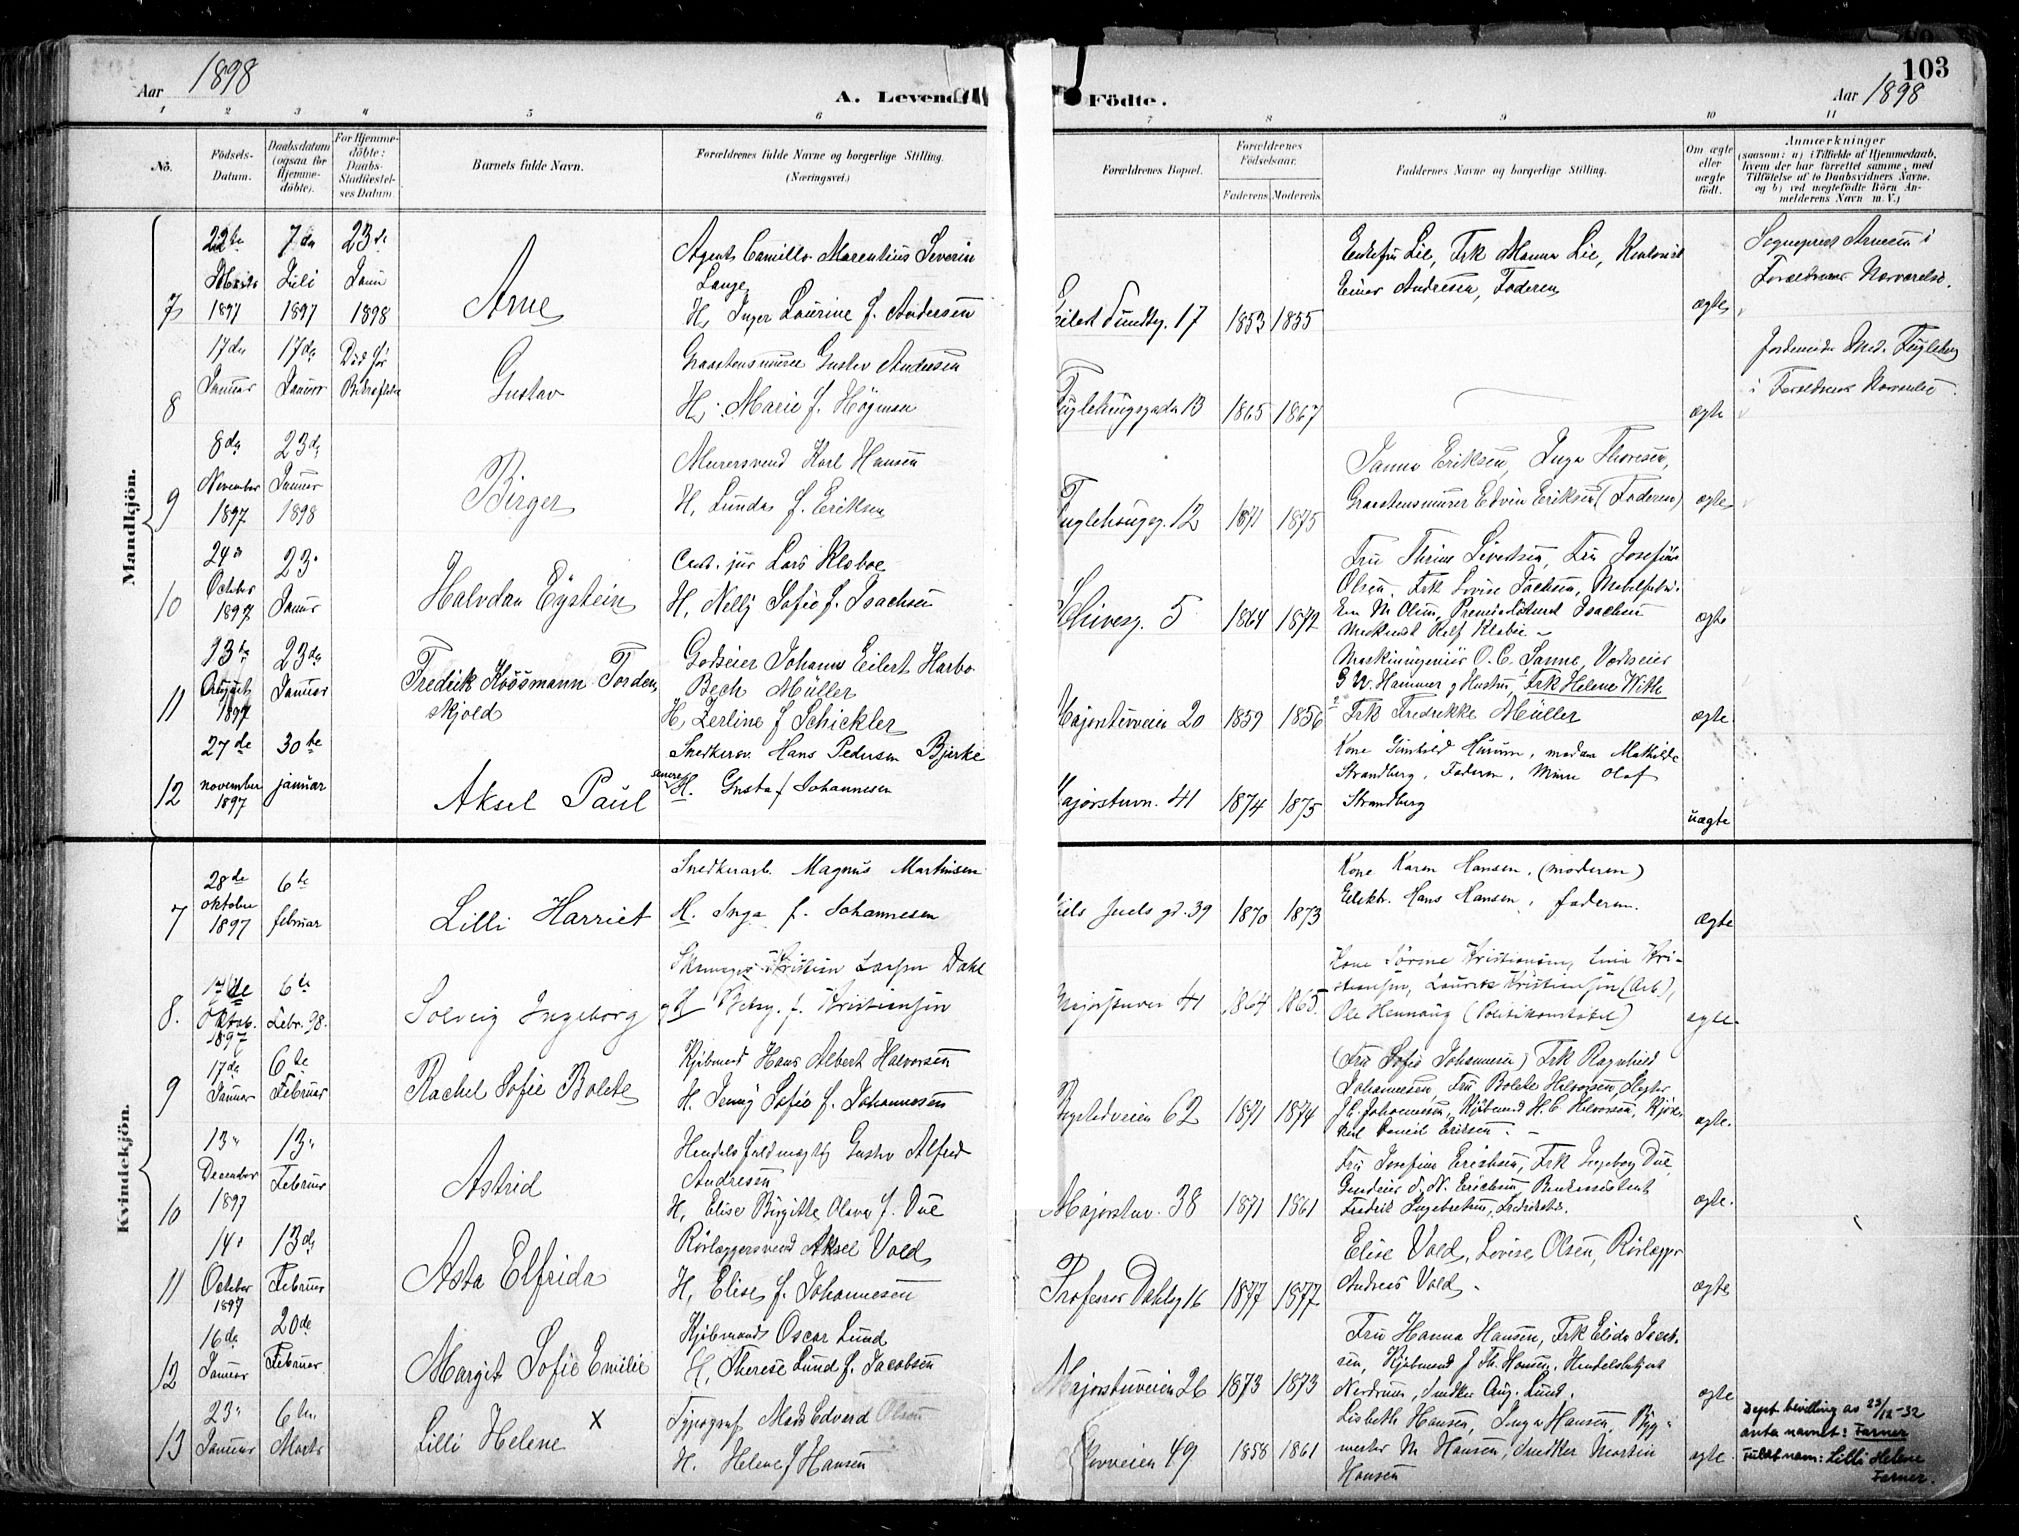 103
Aar 1898
A. Levend
Födte.
Aar 1898
1 2 3 4 5 6 7 8 9 10 11
No.
Födsels-
Datum.
Daabsdatum
(ogsaa for
Hjemme-
döbte).
For Hjemme-
döbte:
Daabs-
Stadfæstel-
ses Datum.
Barnets fulde Navn.
Forældrenes fulde Navne og borgerlige Stilling.
(Næringsvei.)
Forældrenes Bopæl.
Forældrenes
Födselsaar.
Faderens. Moderens.
Faddernes Navne og borgerlige Stilling.
Om ægte
eller
uægte
födt.
Anmærkninger
(saasom: a) i Tilfælde af Hjemmedaab,
hvem der har forrettet samme, med
Tilföielse af to Daabsvidners Navne.
og b) ved uægtefödte Börn An-
melderens Navn m. V.)
Mandkjön.
7
22de
1897
7da
Juli
1897
23de
Janu
1898
Arne
Agent Camillo Marentius Severin
Lange
H. Inger Laurine f. Andersen
Eilert Sundtsg. 17
1853 1855
Enkefru Lie, Frk Manna Lie,
Einar Andresen, Faderen
ægte
Sogneprest Arnesen i
Forældrenes Nærværelse.
8
17de
Januar
17de
Januar
Död før
Gustav
Graastensmurer Gustav Andersen
H. Marie f. Högman
Fuglehaugsgada 13
1865 1867
ægte
Jordemoder Fugleberg
i Forældrenes Nærværelse
9
8da
November
1897
23da
Januar
1898
Birger
Murersvend Karl Hansen
H. Lunda f. Eriksen
Fuglehaugsg. 12
1871 1875
Janna Eriksen, Inga Thoresen,
Graastensmurer Edvin Eriksen (Faderen)
ægte
10
24de
October
1897
23
Januar
Halvdan Eystein
Cand. jur Lars Klaboe
H. Nelly Sofie f. Isachsen
5
1864 1872
Fru Thrine Sivertsen, Fru Josefine
Olsen, Frk Lovise Isachsen,
M Olsen, Isachsen
Rolf Klaboe
ægte
11
1897
23da
Januar
Fredrik Kössmann Torden
skjold
Godseier Johannes Eilert Harbo
Bech Müller
H. Zerline f Schickler
Majorstuveien 20
1859 1856
Maskiningeniör O. C. Sanne, Værkseier
G W. Hammer og Hustru, Frk Helene With
Frk Fredrikke Müller
ægte
12
27de
november
1897
30te
januar
Aksel Paul
Snedkersv. Hans Pedersen Bjerke
H. Gusta f Johannesen
Majorstuvn. 41
1874 1875
Kone Gunhild Hurum, madam Mathilde
Strandberg, Faderen, Murer Olaf
Strandberg
uægte
Kvindekjön.
7
28de
oktober
1897
6te
februar
Lilli Harriet
Snedkerarb. Magnus Martinsen
H. Inga f. Johannesen
Niels Juels gd. 39
1870 1873
Kone Karen Hansen, (moderen)
Elektr. Hans Hansen, faderen.
ægte
8.
17de
Oktob.
1897
6te
Febr. 98.
Solveig Ingeborg
Skomager Kristian Larsen Dahl
og H Betsy. f. Kristiansen
Majorstuvei 41
1864 1865.
Kone Sörine Kristiansen, Lina Kri-
stiansen, Laurits Kristiansen (Arb),
Ole Hennaug (Politikonstabel)
ægte.
9
17da
Januar
6te
Februar
Rachel Sofie Bolete
Kjöbmand Hans Albert Halvorsen
H. Jenny Sofie f. Johannesen
Bogstadveien 62
1871 1874
(Fru Sofie Johannesen) Frk Ragnhild
Johannesen, Fru Bolete Halvorsen, Slagter
J. C. Johannesen, Kjöbmand H. C Halvorsen,
Eriksen.
ægte.
10
13
December
1897
13
Februar
Astrid
Handelsfuldmægtig Gustav Alfred
Andresen
H. Elise Birgitte Olava f. Due
Majorstuv. 38
1871 1861
Fru Josefine Erichsen, Frk Ingeborg Due,
Gaardeier Erichsen, Bankassistent
Fredrik Ingebretsen,
ægte.
11
14
October
1897
13da
Februar
Asta Elfrida
Rörlæggersvend Aksel Vold
H. Elise f. Johannesen
Professor Dahlsg 16
1877 1877
Elise Vold, Lovise Olsen, Rörlægger
Andreas Vold
ægte
12
16da
Januar
20de
Februar
Margit Sofie Emilie
Kjöbmand Oscar Lund
H. Therese Lund f. Jacobsen
Majorstuveien 26
1873 1873
Fru Hanna Hansen, Frk Elida Jacob-
sen, Kjöbmand J. Th. Hansen, Handelsbetjent
Nordrum, Snedker Aug. Lund.
ægte
13
23
Januar
6te
Marts
Lilli Helene x
Typograf Mads Edvard Olsen
H. Helene f Hansen
49
1858 1861
Lisbeth Hansen, Inga Hansen, Byg-
mester M Hansen, Snedker Martin
Hansen
ægte.
Dept bevilling av 23/12-32
anta navnet: Farner
Fulde navn: Lilli Helene
Farner.